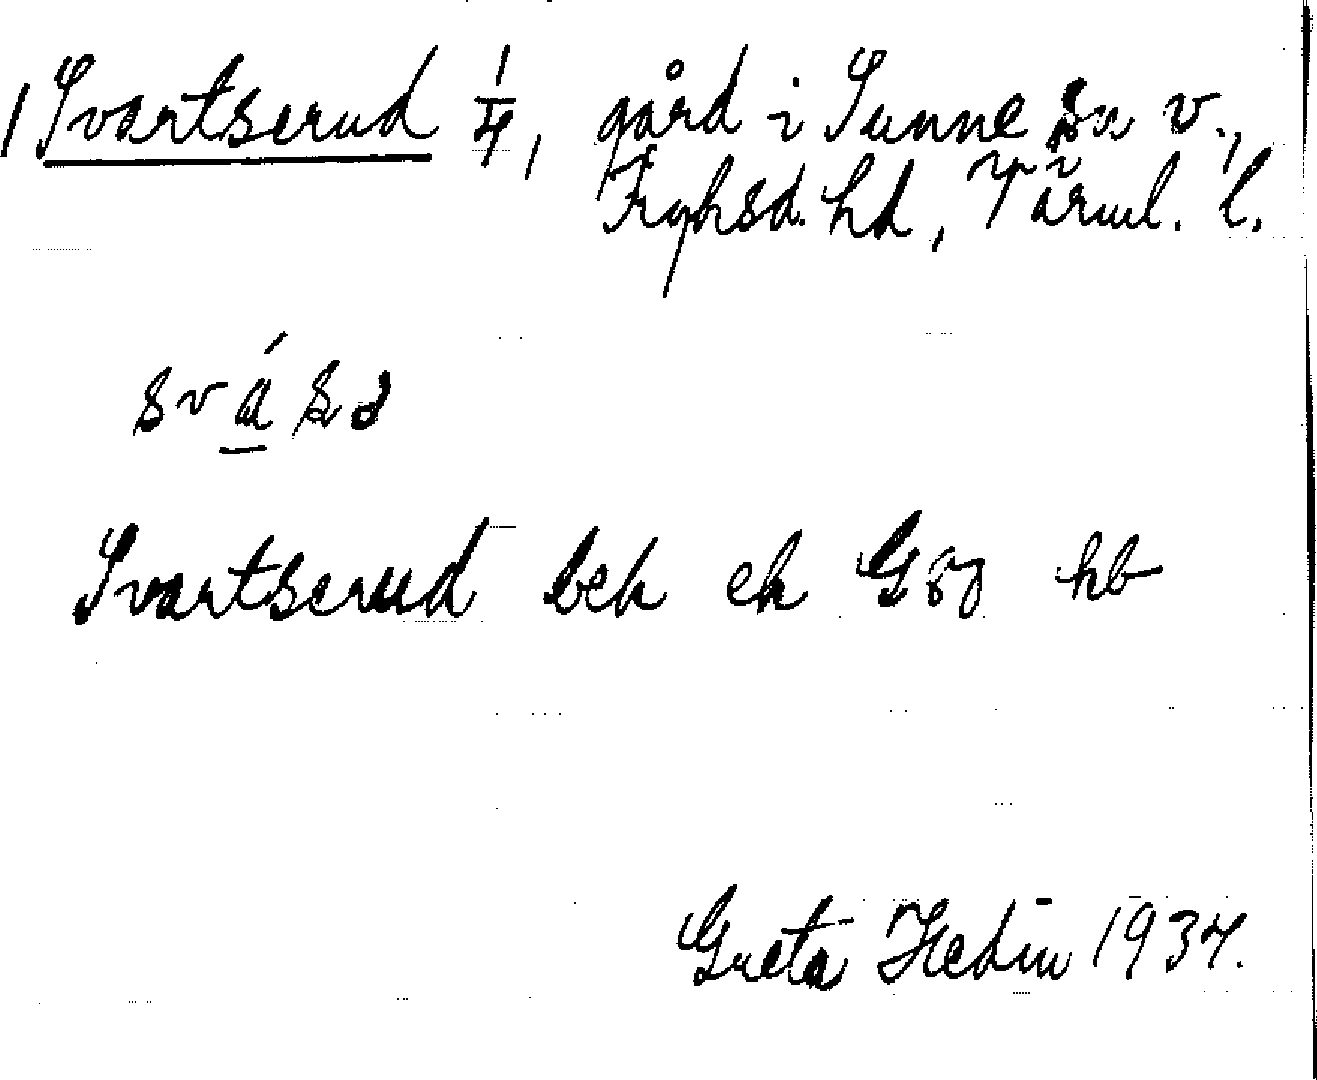 1 Svartserud 1/4, gård i Sunne sn v.,
Fryksd. hd, Värml. l.
Svartserud bek ek G80 hb
Greta Hedin 1934.